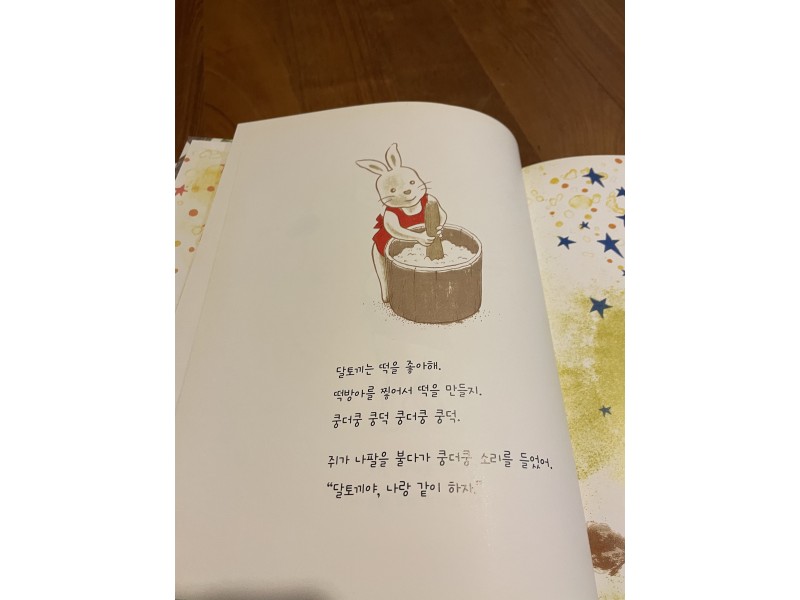 달토끼는 떡을 좋아해.
떡방아를 찧어서 떡을 만들지.
쿵더쿵 쿵덕 쿵더쿵 쿵덕.
쥐가 나팔을 불다가 쿵더쿵 소리를 들었어.
“달토끼야, 나랑 같이 하자.”